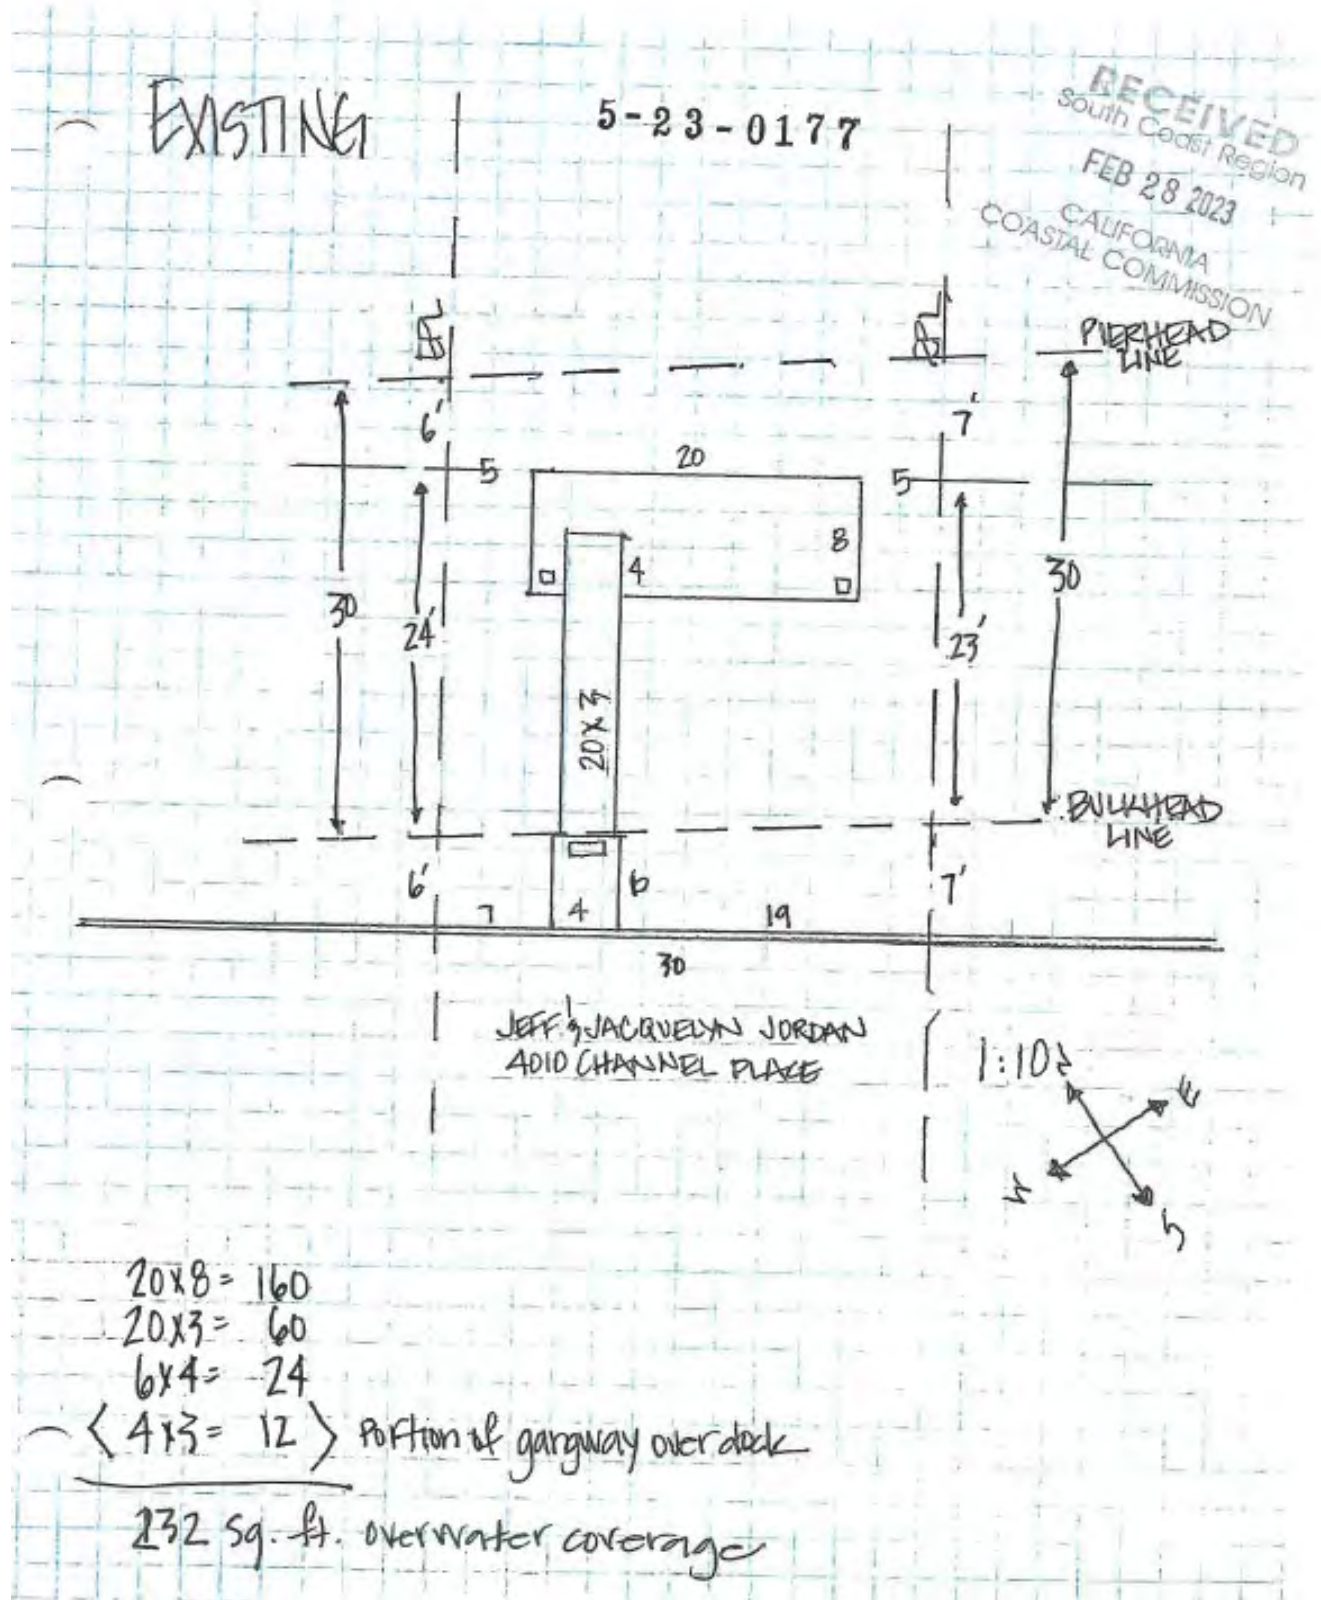 EXISTING
5-23-0177
RECEIVED
South Coast Region
FEB 28 2023
CALIFORNIA
COASTAL COMMISSION
PIERHEAD
LINE
6'
7'
5
20
5
8
4
30
24'
23'
30
20X3
BULKHEAD
LINE
6'
6
7'
7
4
19
30
JEFF & JACQUELYN JORDAN
4010 CHANNEL PLACE
1:10
N
E
W
S
20X8= 160
20X3= 60
6X4= 24
< 4X3= 12 > Portion of gangway over dock
232 sq. ft. overwater coverage